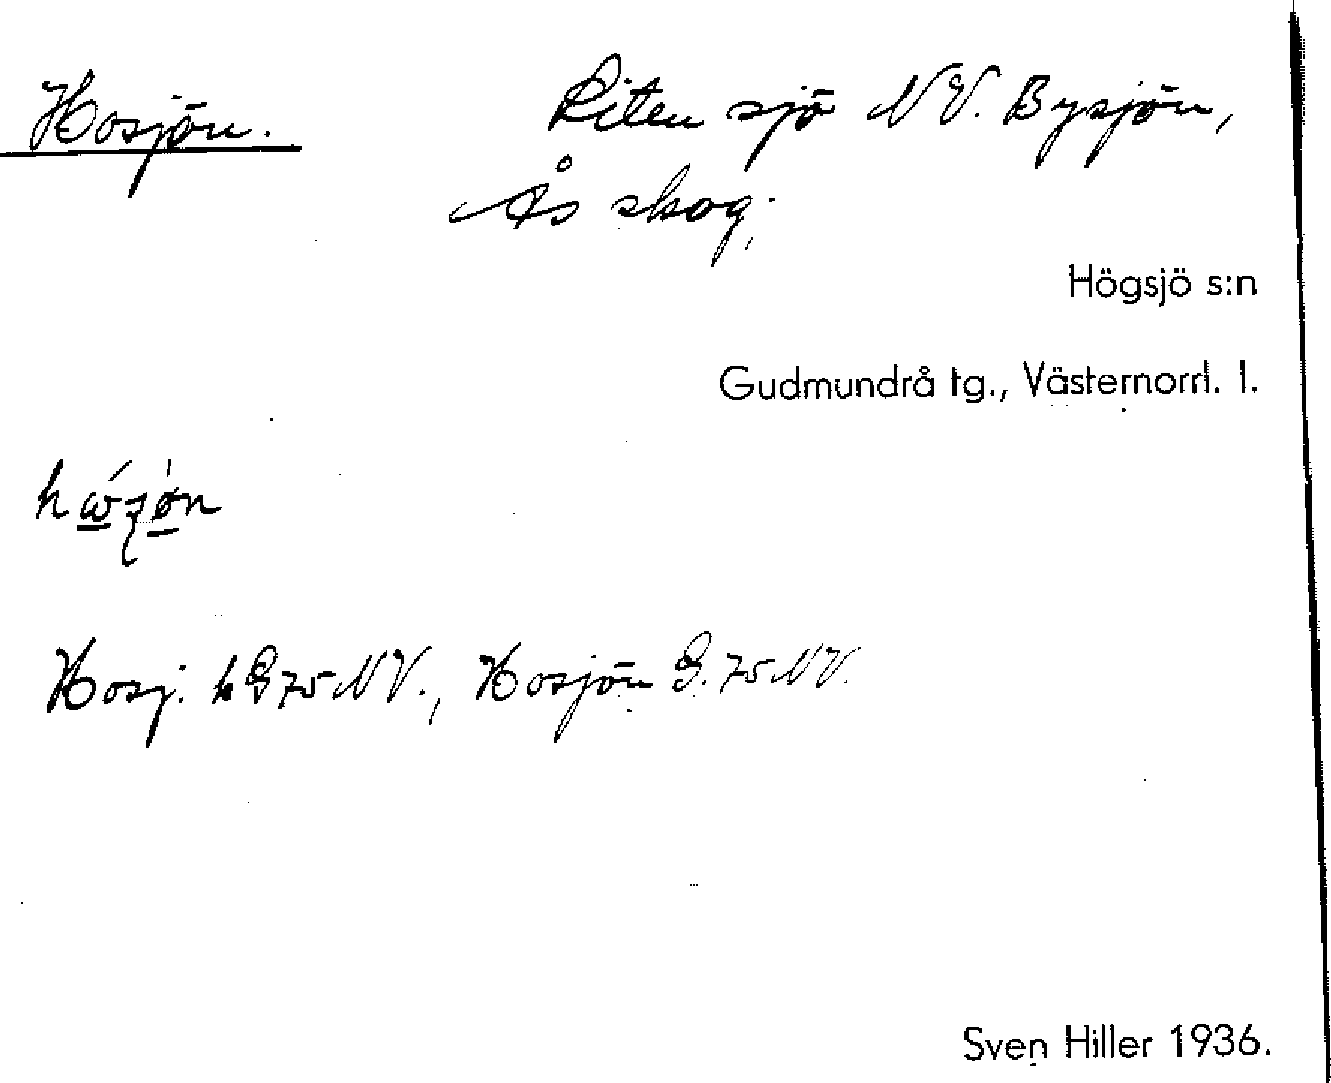 Hosjön. Liten sjö NV. Bysjön,
Ås skog;
Högsjö s:n
Gudmundrå tg., Västernorrl. l.
Hosj. k G 75 NV., Hosjön G. 75 NV.
Sven Hiller 1936.